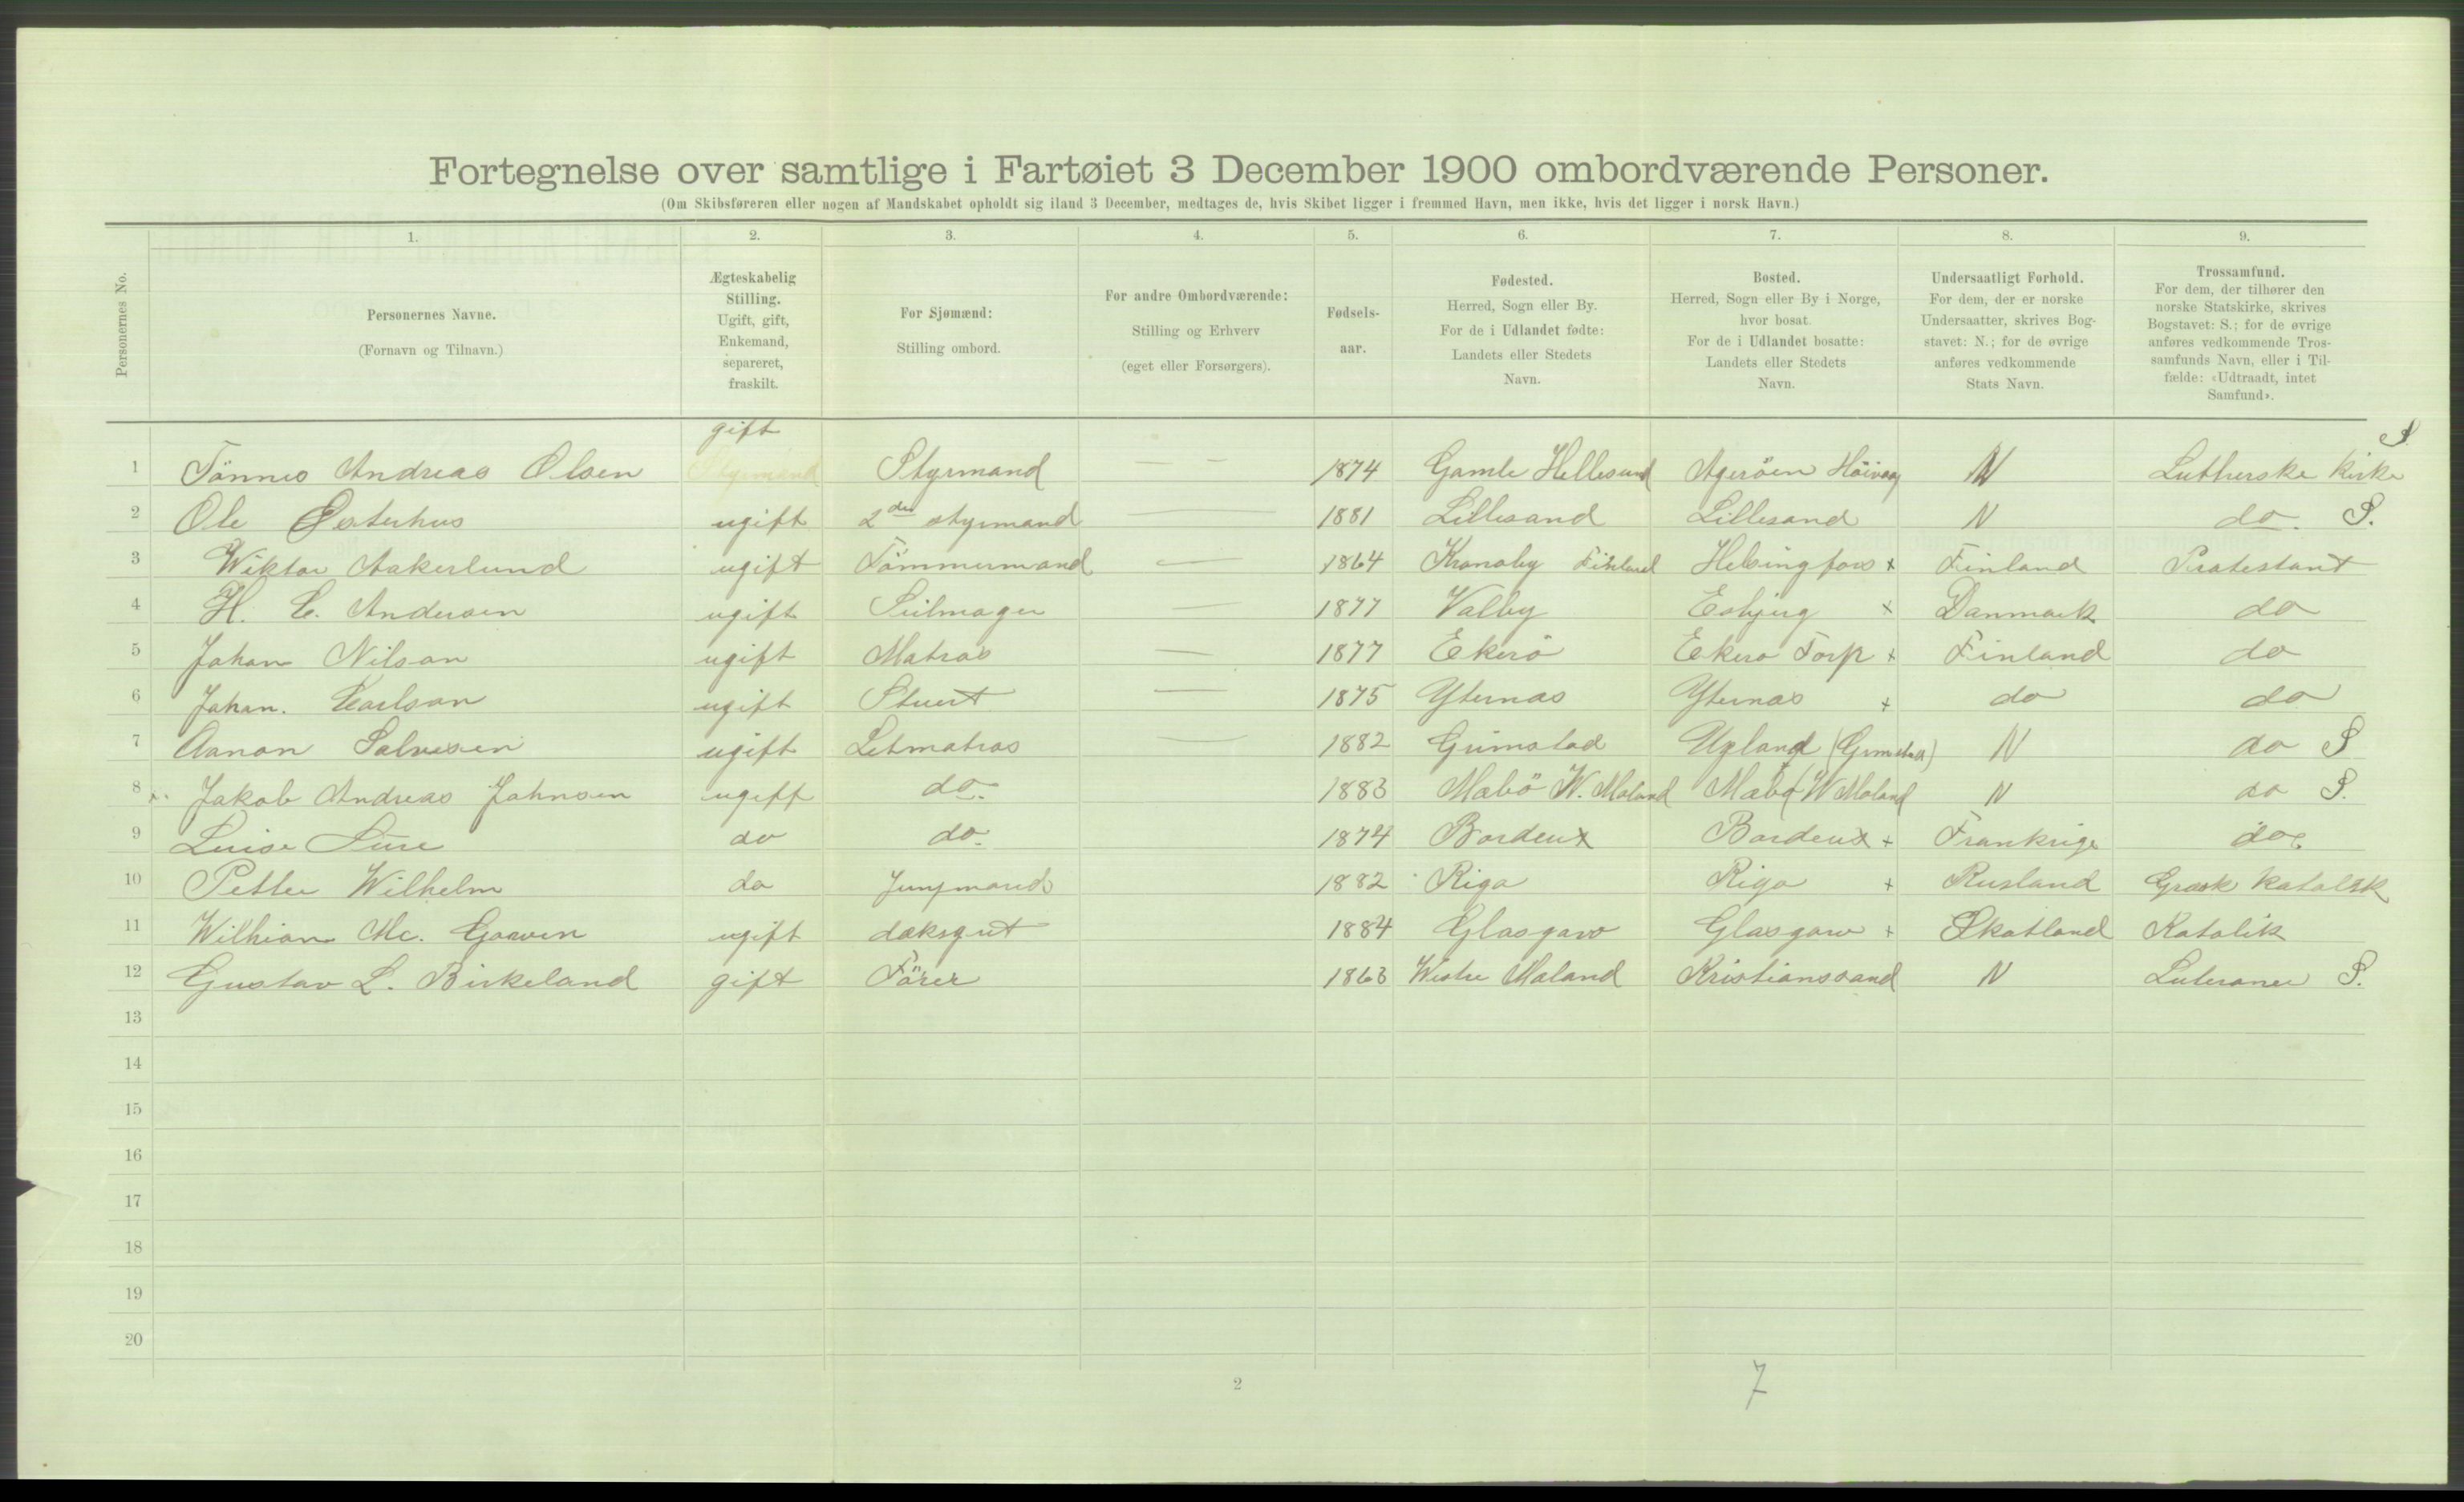 Fortegnelse over samtlige i Fartøiet 3 December 1900 ombordværende Personer.
(Om Skibsføreren eller nogen af Mandskabet opholdt sig iland 3 December, medtages de, hvis Skibet ligger i fremmed Havn, men ikke, hvis det ligger i norsk Havn.)
Personernes No.
1. 2. 3. 4. 5. 6. 7. 8. 9.
Personernes Navne.
(Fornavn og Tilnavn.)
Ægteskabelig
Stilling.
Ugift, gift,
Enkemand,
separeret,
fraskilt.
For Sjømænd:
Stilling ombord.
For andre Ombordværende:
Stilling og Erhverv
(eget eller Forsørgers).
Fødsels-
aar.
Fødested.
Herred, Sogn eller By.
For de i Udlandet fødte:
Landets eller Stedets
Navn.
Bosted.
Herred, Sogn eller By i Norge,
hvor bosat.
For de i Udlandet bosatte:
Landets eller Stedets
Navn.
Undersaatligt Forhold.
For dem, der er norske
Undersaatter, skrives Bog-
stavet: N.; for de øvrige
anføres vedkommende
Stats Navn.
Trossamfund.
For dem, der tilhører den
norske Statskirke, skrives
Bogstavet: S.; for de øvrige
anføres vedkommende Tros-
samfunds Navn, eller i Til-
fælde: «Udtraadt, intet
Samfund».
1 Tönnes Andreas Olsen gift Styrmand — — 1874 Gamle Hellesund Ageröen Höivaag N Lutherske Kirke S.
2 Ole Østerhus ugift 2den styrmand — 1881 Lillesand Lillesand N do. S.
3 Wiktor Aakerlund ugift Tömmermand — 1864 Kronoby Finland Helsingfors + Finland Protestant
4 H. C. Andersen ugift Seilmager — 1877 Valby Esbjerg + Danmark do
5 Johan Nilson ugift Matros — 1877 Ekerö Ekero Torp + Finland do
6 Johan. Karlson ugift Stuert — 1875 Yternas Yternas + do do
7 Aanon Salvesen ugift Letmatros — 1882 Grimstad Ugland (Grimstad) N do S
8 Jakob Andreas Johnsen ugift do. 1883 Mabö W. Moland Mabö W Moland N do S.
9 Luise do do. 1874 Bordeux Bordeux + Frankrige do
10 Petter Wilhelm do Jungmand 1882 Riga Riga + Rusland Græsk Katolsk
11 Wilhiam Mc. Gowen ugift daksgut 1884 Glasgow Glasgow + Skotland Katolik
12 Gustav L. Birkeland gift Förer 1863 Westre Moland Kristianssand N Luteraner S.
13
14
15
16
17
18
19
20
2
7